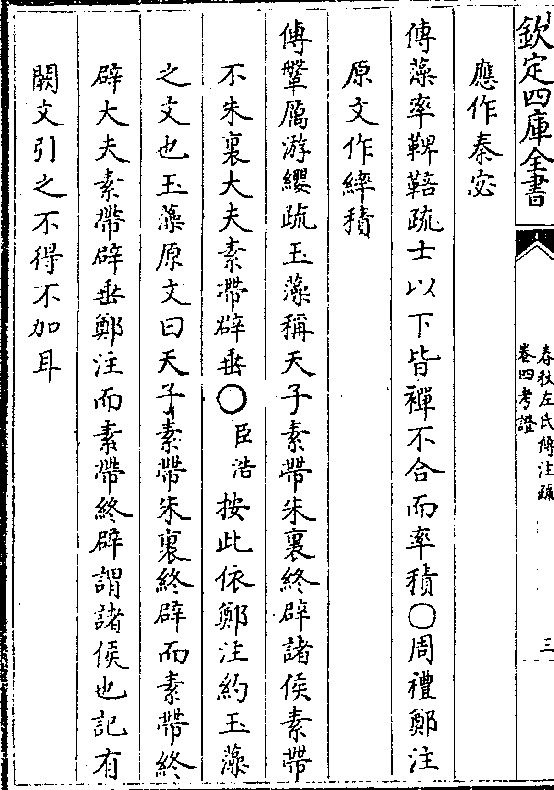 欽定四庫全書
春秋左氏傳注疏
卷四考證
三
應作秦宓
傳藻率鞞鞛疏士以下皆襌不合而率積○周禮鄭注
原文作繂積
傳鞶厲游纓疏玉藻稱天子素帶朱裏終辟諸侯素帶
不朱裏大夫素帶辟垂○臣浩按此依鄭注約玉藻
之文也玉藻原文曰天子素帶朱裏終辟而素帶終
辟大夫素帶辟垂鄭注而素帶終辟謂諸侯也記有
闕文引之不得不加耳